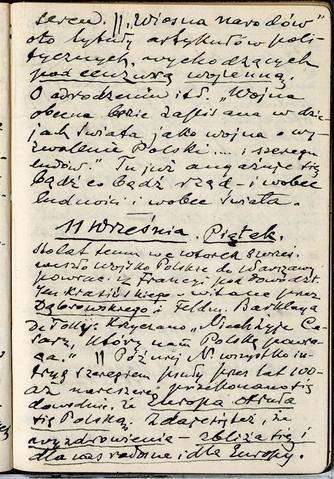 serca. || „Wiosna narodów”
oto tytuły artykułów poli-
tycznych, wychodzących
pod cenzurą wojenną.
O odrodzeniu itd. „Wojna
obecna będzie zapisana w dzie-
jach świata jako wojna o wy-
zwolenie Polski... i szeregu
ludów.” Tu już angażuje się
bądź co bądź rząd – i wobec
ludności i wobec świata.
11 Września. Piątek.
Sto lat temu we wtorek 8 wrześ.
weszło wojsko Polskie do Warszawy
powrac. z Francji, pod dowództ.
Jen. Krasińskiego – witane przez
Dąbrowskiego i Feldm. Barklaya
de Tolly: krzyczano „Niechżyje Ce-
sarz, który nam Polskę powra-
ca.” || Później N. wszystko in-
trygą szeregiem psuły przez lat 100 –
aż nareszcie przekonano się
dowodnie, że Europa struła
się Polską. Zdaje się też, że
wyzdrowienie – zbliża się i
dla nas radosne i dla Europy.